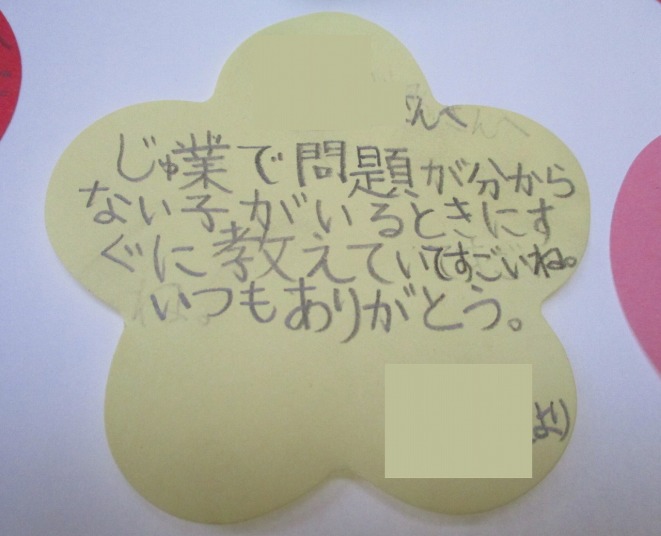 さんへ
じゅ業で問題が分から
ない子がいるときにす
ぐに教えていてすごいね。
いつもありがとう。
より